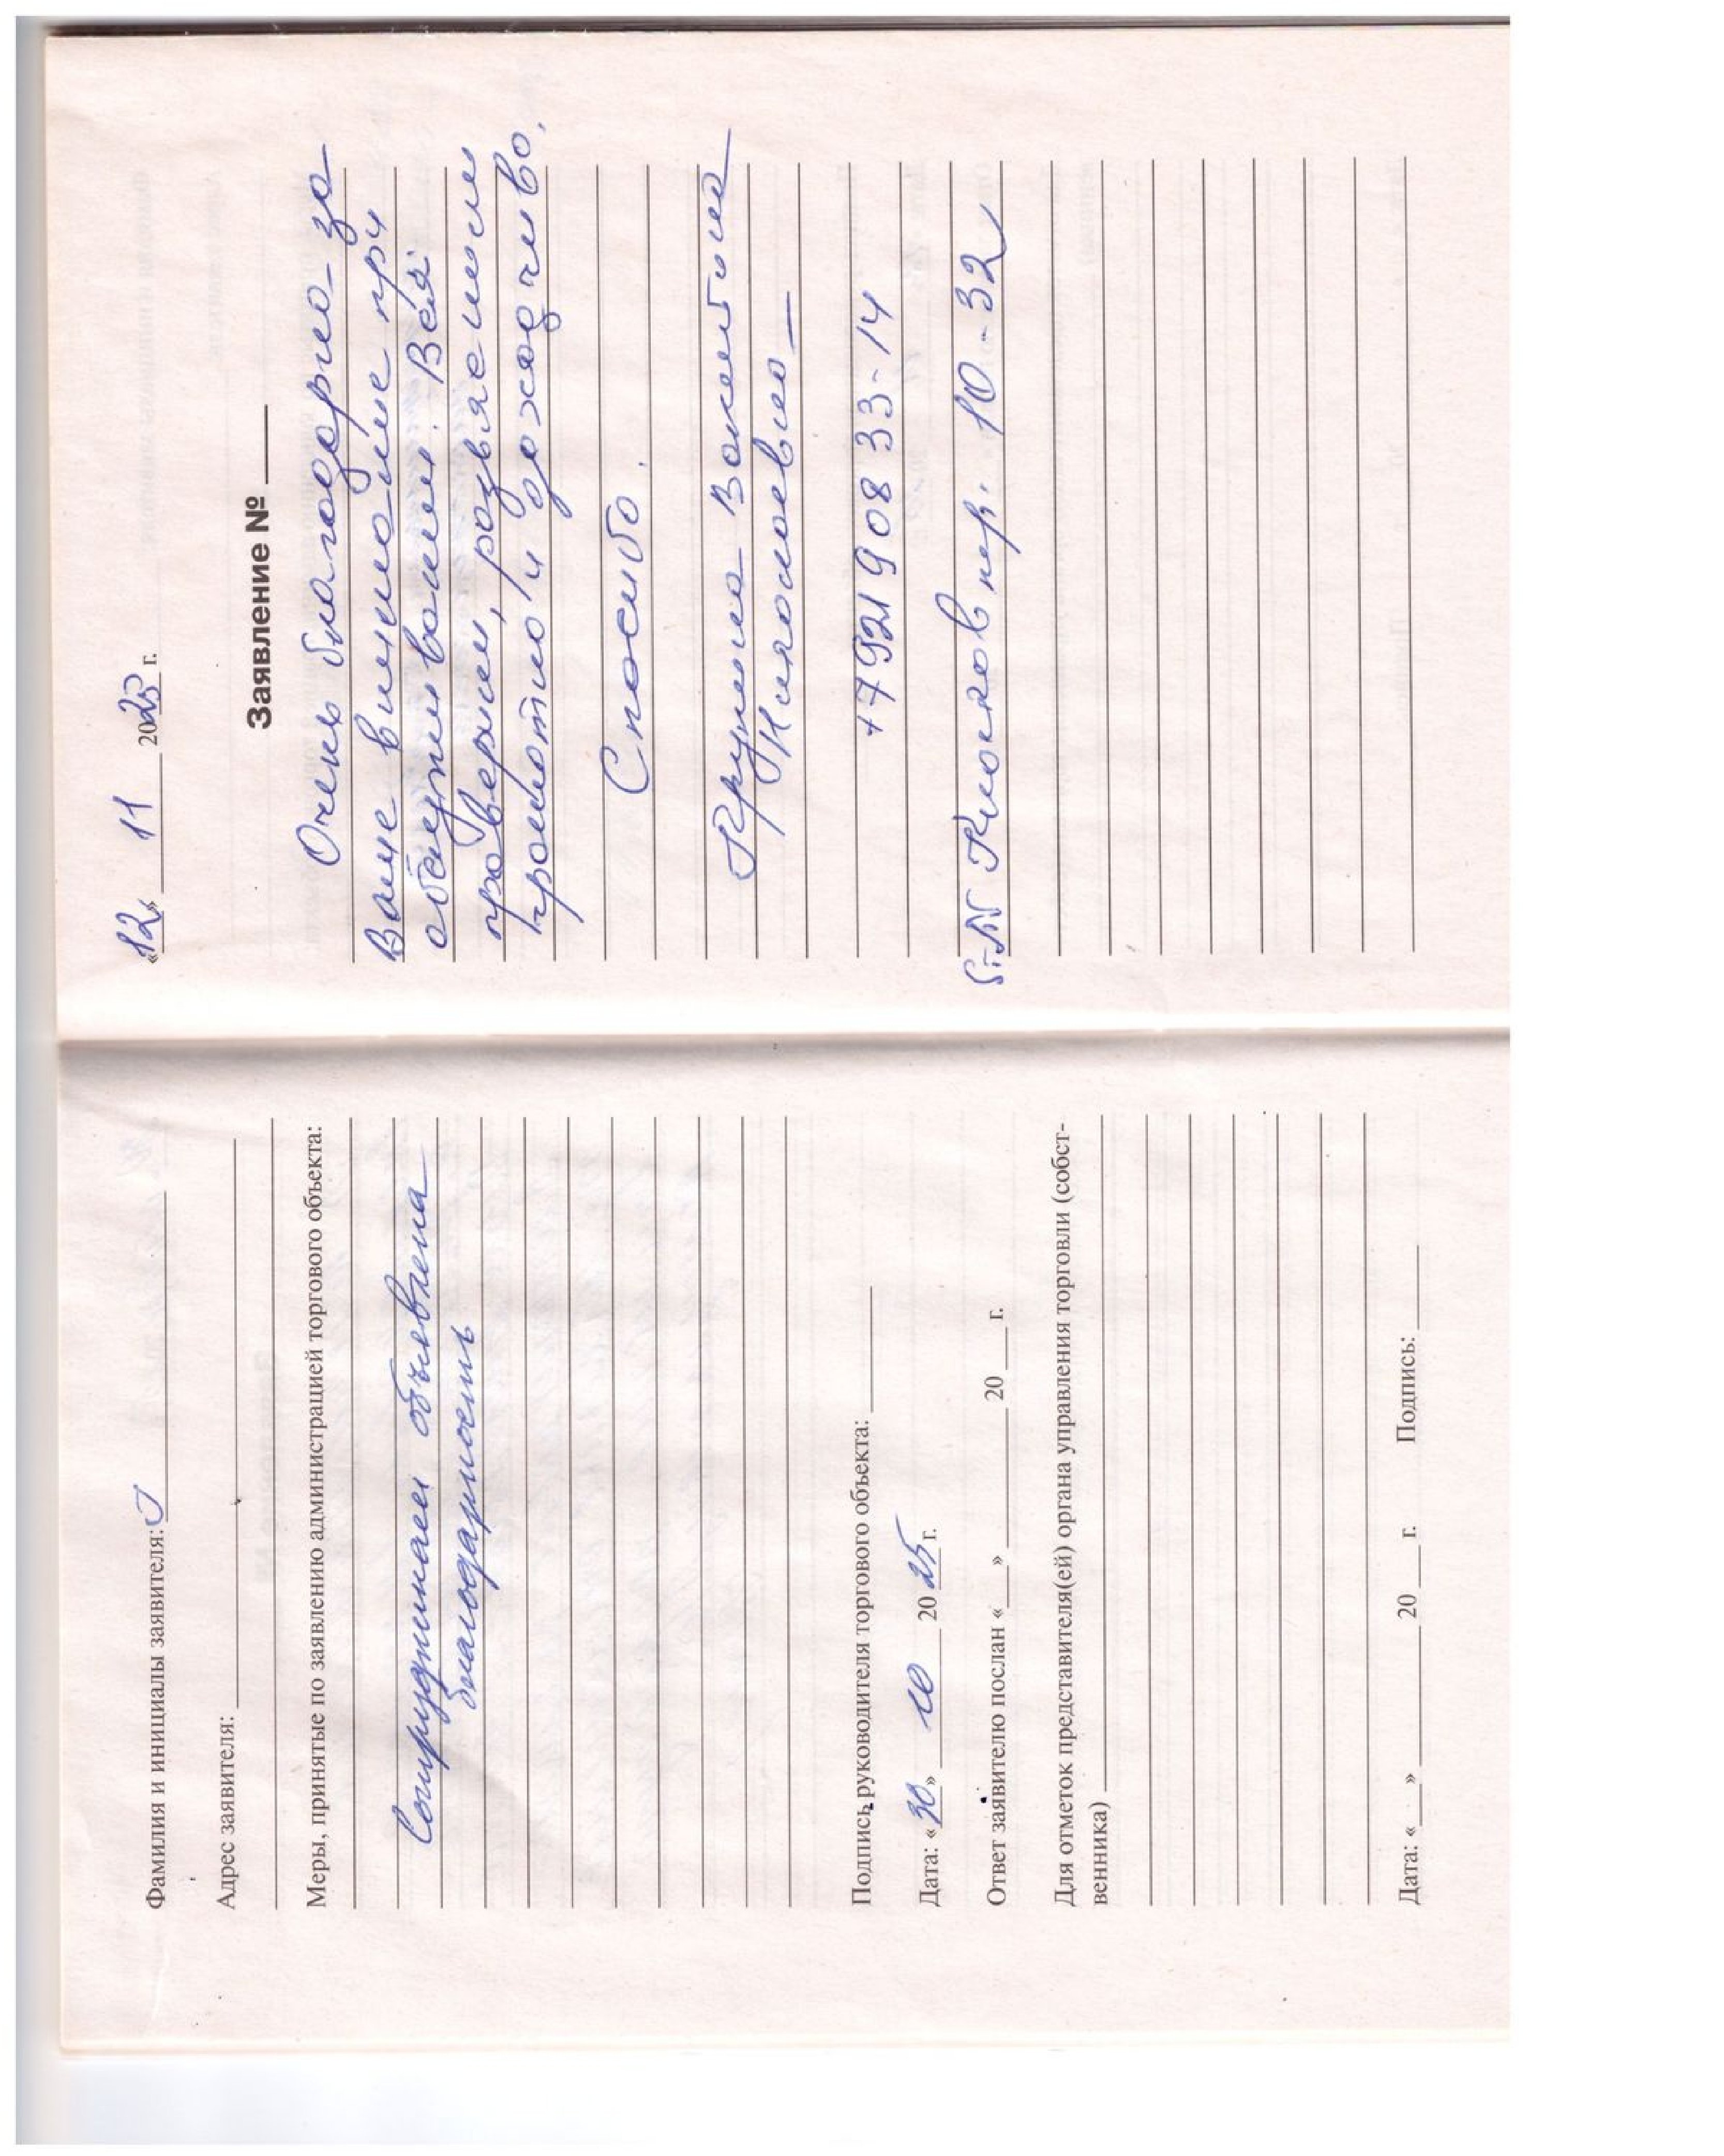 Фамилия и инициалы заявителя:
Адрес заявителя:
Меры, принятые по заявлению администрацией торгового объекта:
Сотрудникам объявлена
благодарность
Подпись руководителя торгового объекта:
Дата: «30» 10 2025 г.
Ответ заявителю послан «___» 20___ г.
Для отметок представителя(ей) органа управления торговли (собст-
венника)
Дата: «___» 20___ г. Подпись:
«12» 11 2025 г.
Заявление №
Очень благодарна за
Ваше внимание при
обслуживании. Всё
проверили, разъяснили
грамотно и доходчиво.
Спасибо.
Николаевна
+7 921 908 33-14
пер. 10-32